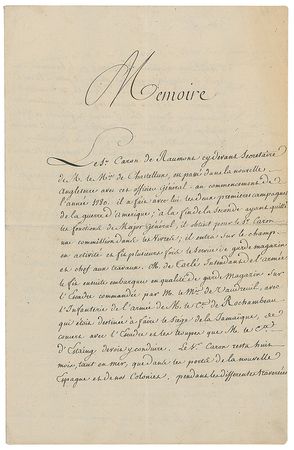 Memoire
Le Sr. Caron de Raumont cy devant Secretaire
de M. le Mis. de Chatellux, est passé dans la nouvelle
Angleterre avec cet officier Général au commencement de
l'année 1780. il a fait avec lui les deux premieres campagnes
de la guerre d'amerique; à la fin de la seconde ayant quitté
les fonctions de Major Général, il obtint pour le Sr. Caron
une commission dans les Vivres; il entra sur le champ
en activité et fit plusieurs fois le service de garde magasin
et chef aux travaux. M. de Tarlé Intendant de l'armée
le fit ensuite embarquer en qualité de garde Magasin sur
l'Escadre commandée par M. le Mis. de Vaudreuil, avec
l'Infanterie de l'armée de M. le Cte. de Rochambeau
qui étoit destinée à faire le siege de la Jamaïque, de
concert avec l'Escadre et les troupes que M. le Cte.
d'Estaing devoit y conduire. Le Sr. Caron resta huit
mois, tant en mer, que dans les ports de la nouvelle
Espagne et de nos Colonies, pendant les différentes traversées